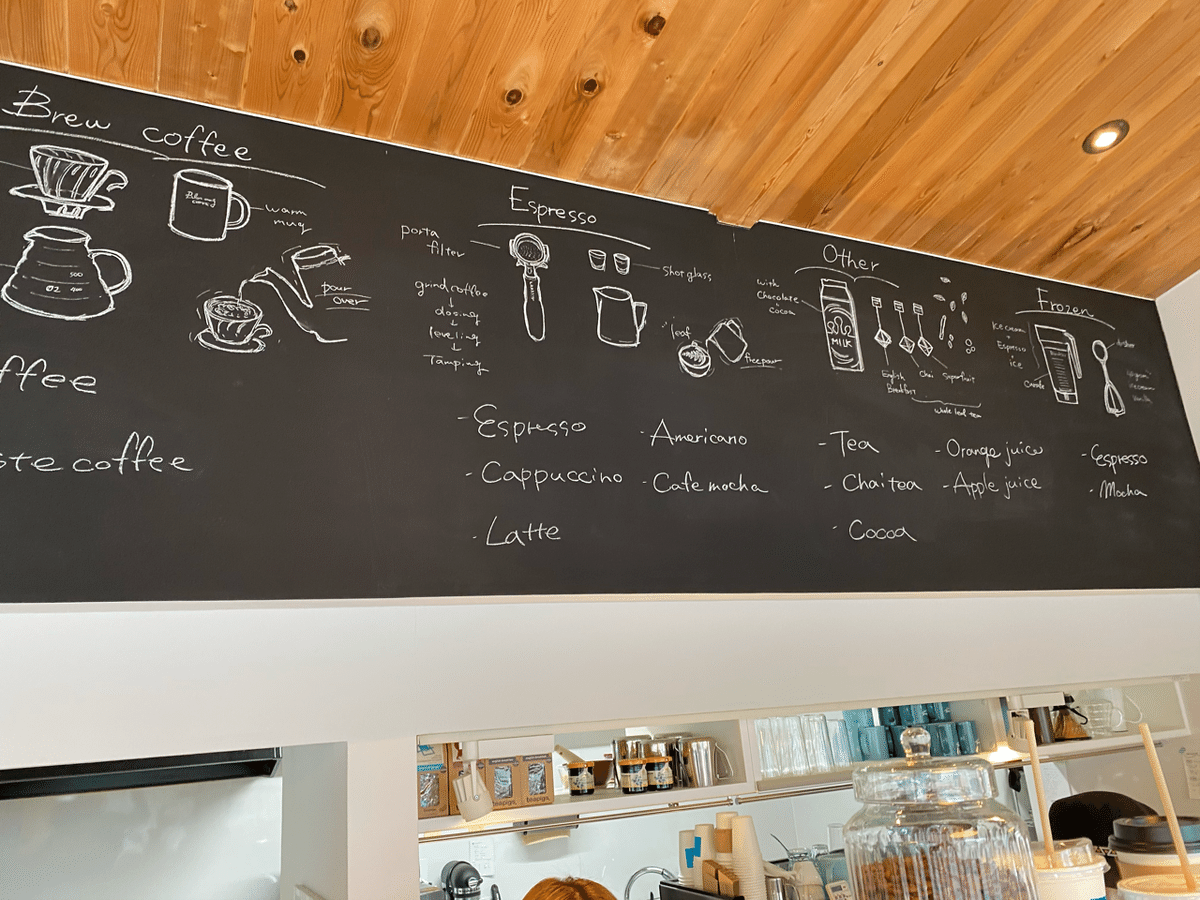 Brew coffee
warm
mug
500
pour
over
ffee
ste coffee
Espresso
porta
filter
grind coffee
dosing
leveling
Tamping
Shot glass
leaf
free pour
- Espresso
- Cappuccino
- Latte
- Americano
- Cafe mocha
Other
with
Chocolate
cocoa
MILK
English
Breakfast
Chai
whole leaf tea
- Tea
- Chai tea
- Cocoa
- Orange juice
- Apple juice
Frozen
Ice cream
+
Espresso
+
ice
- Espresso
- Mocha
teapigs